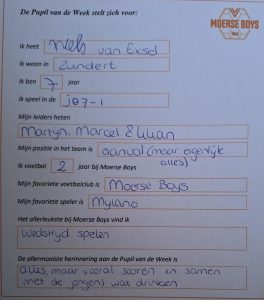 De Pupil van de Week stelt zich voor:
MOERSE BOYS
Ik heet Niels van Exsel
Ik woon in Zundert
Ik ben 7 jaar
Ik speel in de JO7-1
Mijn leiders heten
Martyn, Marcel & Luan
Mijn positie in het team is aanval (maar eigenlijk
alles)
Ik voetbal 2 jaar bij Moerse Boys
Mijn favoriete voetbalclub is Moerse Boys
Mijn favoriete speler is Mylano
Het allerleukste bij Moerse Boys vind ik
Wedstrijd spelen
De allermooiste herinnering aan de Pupil van de Week is
alles, maar vooral scoren en samen
met de jongens wat drinken